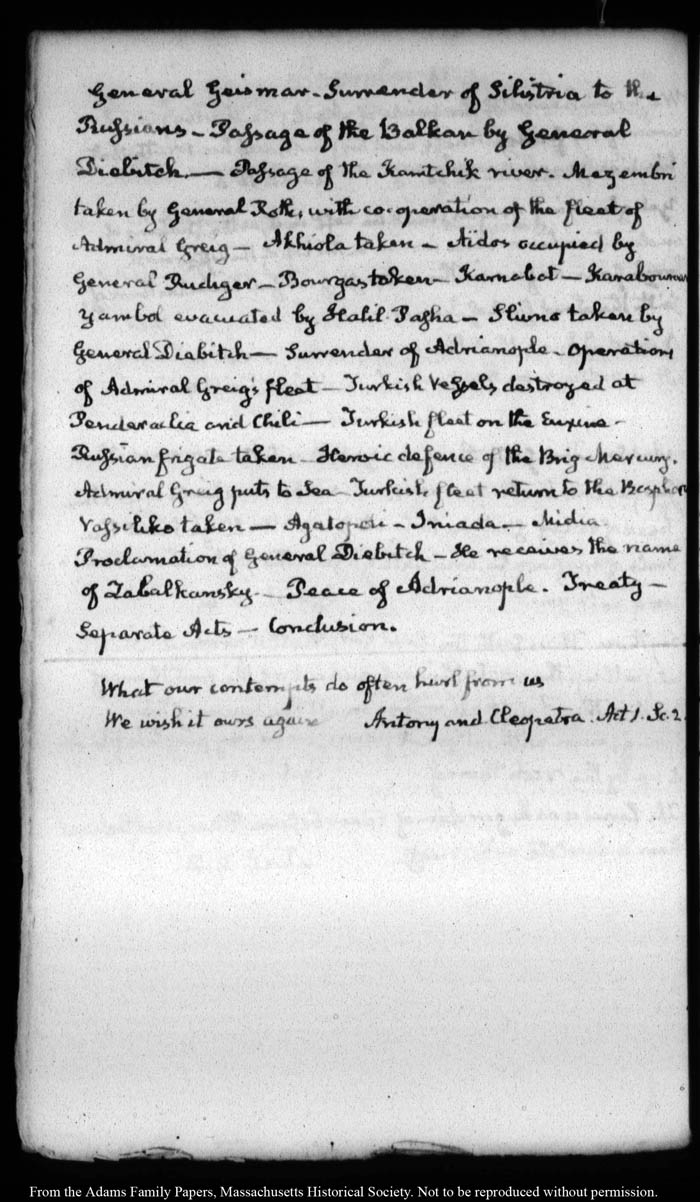 General Geismar - Surrender of Silistria to the
Russians - Passage of the Balkan by General
Diebitch. — Passage of the Kamtchik river. Mezembri
taken by General Roth, with co-operation of the fleet of
Admiral Greig — Akhiola taken - Aïdos occupied by
General Rudiger - Bourgas taken - Karnabat — Karabounar
Yambol evacuated by Halil Pasha - Slivno taken by
General Diebitch — Surrender of Adrianople - Operations
of Admiral Greig's fleet - Turkish Vessels destroyed at
Penderaclia and Chili — Turkish fleet on the Euxine -
Russian frigate taken - Heroic defence of the Brig Mercury.
Admiral Greig puts to Sea - Turkish fleet return to the Bosphor
Vassiliko taken — Agatopoli - Iniada — Midia
Proclamation of General Diebitch - He receives the name
of Zabalkansky - Peace of Adrianople. Treaty -
Separate Acts — Conclusion.
What our contempts do often hurl from us
We wish it ours again Antony and Cleopatra. Act 1. Sc. 2.
From the Adams Family Papers, Massachusetts Historical Society. Not to be reproduced without permission.